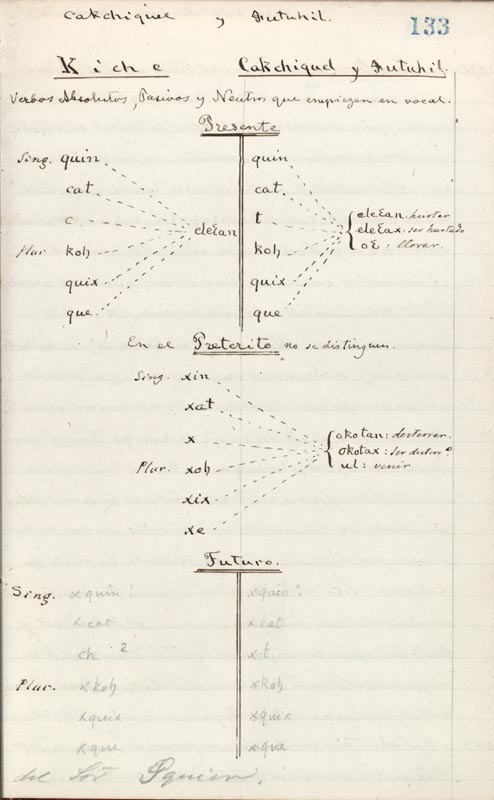 Cakchiquel y Zutuhil.
133
Kiche Cakchiquel y Zutuhil.
Verbos Absolutos, Pasivos y Neutros que empiezan en vocal.
Presente
Sing. quin quin
cat cat
c eleɛan t { eleɛan. hurtar
eleɛax. ser hurtado
oɛ : llorar.
Plur koh koh
quix quix
que que
En el Preterito no se distinguen.
Sing. xin
xat
x { okotan : desterrar.
okotax : ser desterr.º
ul : venir
Plur. xoh
xix
xe
Futuro.
Sing. xquin xquin
xcat xcat
ch 2 xt
Plur. xkoh xkoh
xquix xquix
xque xque